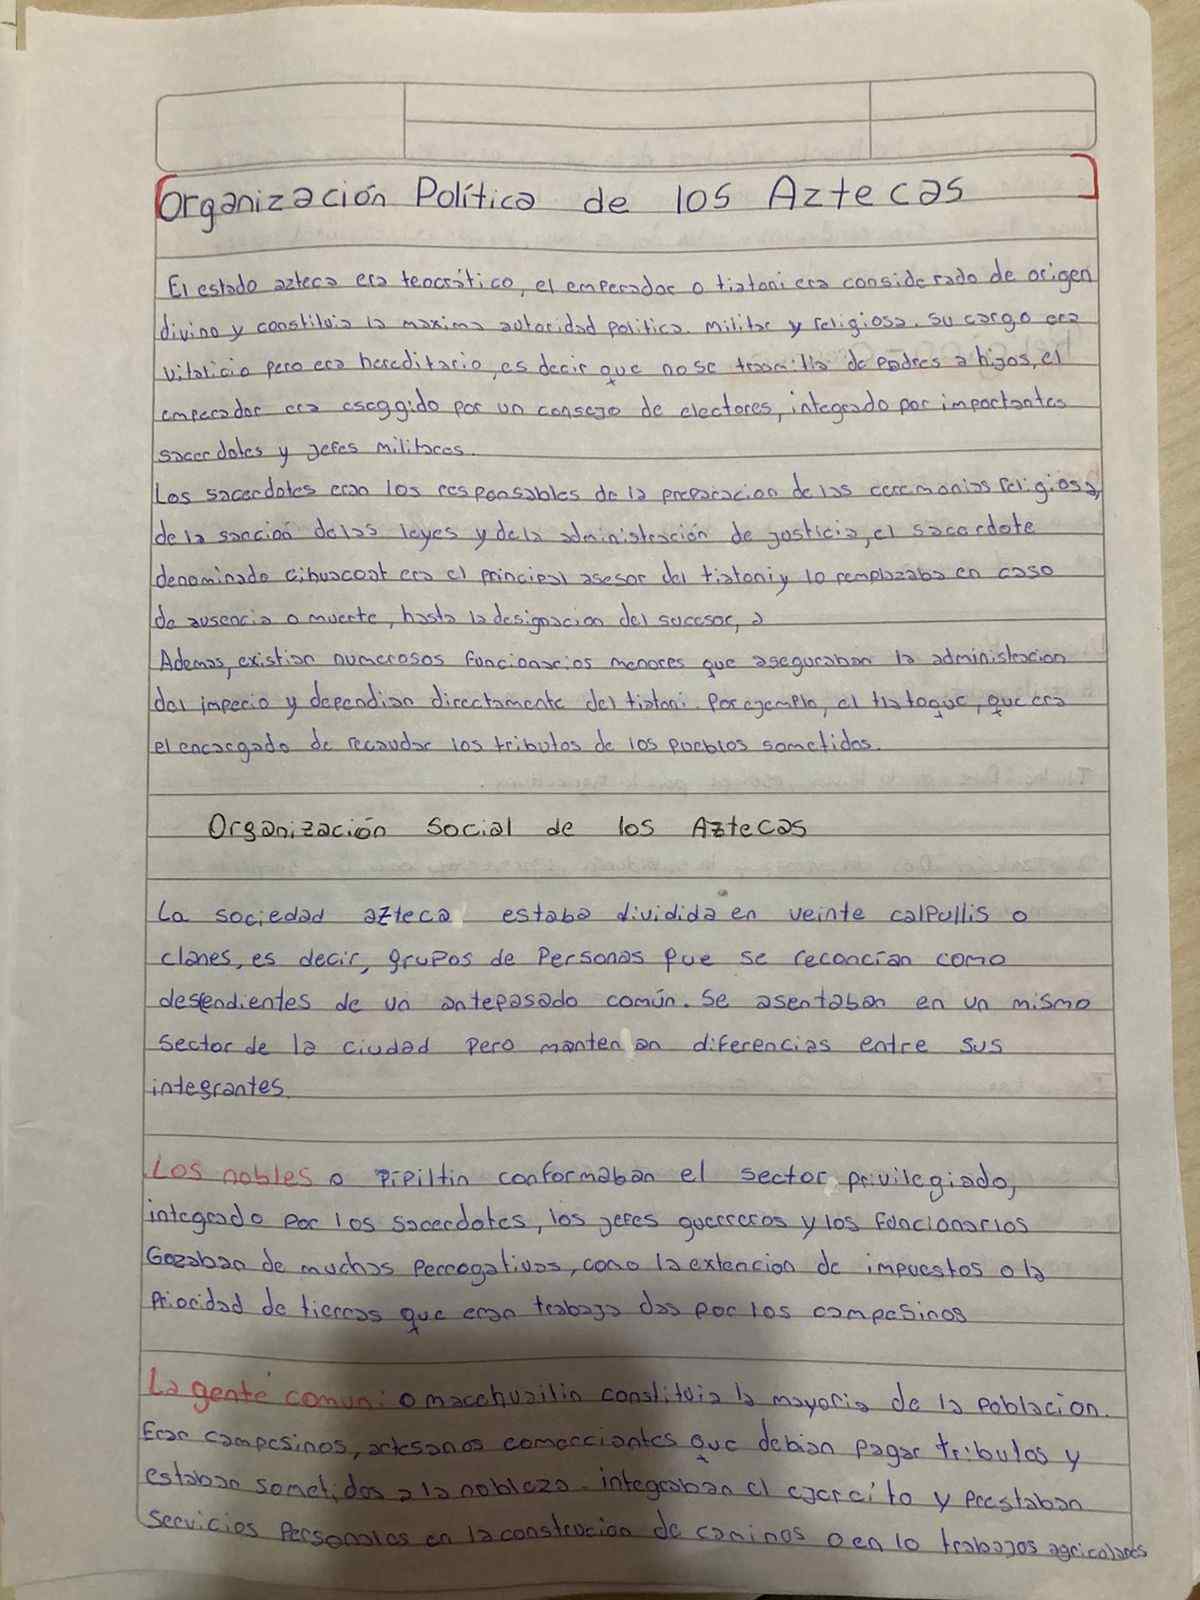 Organización Política de los Aztecas
El estado azteca era teocrático, el emperador o tiatoni era considerado de origen
divino y constituia la maxima autoridad politica. militar y religiosa. su cargo era
vitalicio pero era hereditario, es decir que no se trasmitia de padres a hijos, el
emperador era escoggido por un consejo de electores, integrado por importantes
sacerdotes y jefes militares.
Los sacerdotes eran los responsables de la preparacion de las ceremonias religiosa,
de la sanción de las leyes y de la administración de justicia, el sacerdote
denominado cihuacoat era el principal asesor del tiatoni y lo remplazaba en caso
de ausencia o muerte, hasta la designacion del sucesor, a
Ademas, existian numerosos funcionarios menores que aseguraban la administracion
del imperio y dependian directamente del tiatoni. Por ejemplo, el tlatoque, que era
el encargado de recaudar los tributos de los pueblos sometidos.
Organización social de los Aztecas
La sociedad azteca estaba dividida en veinte calpullis o
clanes, es decir, grupos de Personas que se reconcían como
desendientes de un antepasado común. Se asentaban en un mismo
sector de la ciudad pero manten an diferencias entre sus
integrantes.
Los nobles o pipiltin conformaban el sector privilegiado,
integrado por los sacerdotes, los jefes guerreros y los funcionarios
Gozaban de muchas perrogativas, como la extencion de impuestos o la
priocidad de tierras que eran trabaja das por los campesinos
La gente comun: o macehuailin constituia la mayoria de la poblacion.
Eran campesinos, artesanos comerciantes que debian pagar tributos y
estaban sometidos a la nobleza. integraban el ejercito y prestaban
servicios personales en la construcion de caminos o en lo trabajos agricolares